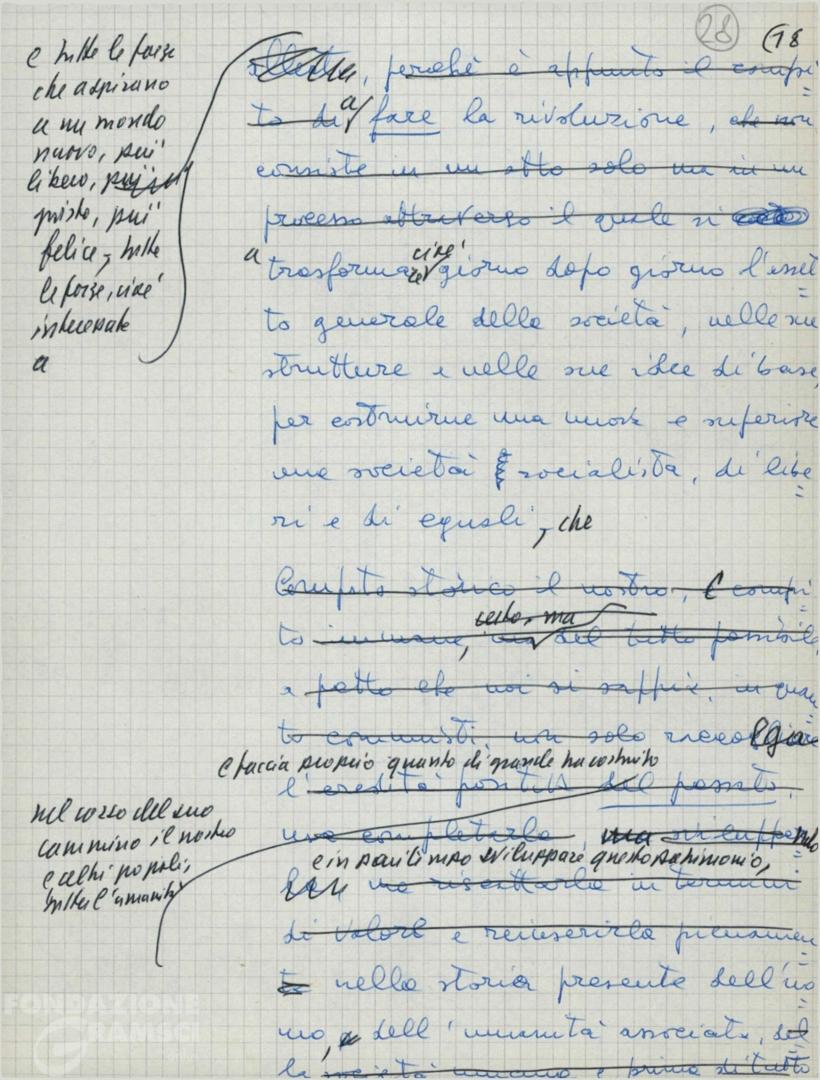 28 (18
e tutte le forze
che aspirano
a un mondo
nuovo, più
libero, più
giusto, più
felice, tutte
le forze, cioè
interessate
a
, perché è appunto il compi=
to di a fare la rivoluzione, che non
consiste in un atto solo ma in un
processo attraverso il quale si
a trasformare cioè giorno dopo giorno l'asset=
to generale della società, nelle sue
strutture e nelle sue idee di base,
per costruirne una nuova e superiore
una società socialista, di libe=
ri e di eguali, che
Compito storico il nostro, È compi=
certo, ma
to immane, ma del tutto possibile,
a patto che noi si sappia, in quan=
to comunisti, non solo raccolga
e faccia proprio quanto di grande ha costruito
l'eredità positiva del passato,
nel corso del suo
cammino il nostro
e altri popoli,
tutta l'umanità
ma completarla, ma sviluppando
e in pari tempo sviluppare questo patrimonio,
ma riscattarla in termini
di valore e reinserirla pienamen=
te nella storia presente dell'uo=
mo, e dell'umanità associata, del=
la società umana e prima di tutto
FONDAZIONE
GRAMSCI